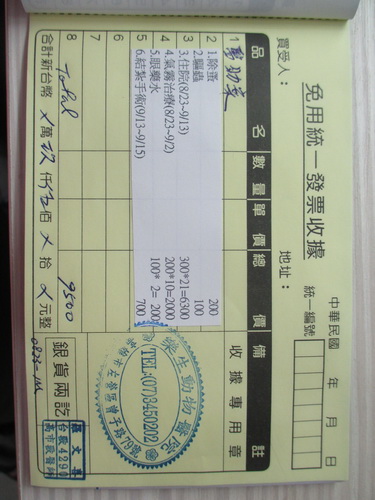 免用統一發票收據
中華民國 年 月 日
買受人：
地址：
統一編號
品名 數量 單價 總價 備註
1
2 1.除蚤 200
2.驅蟲 100
3 3.住院(8/23~9/13) 300*21=6300
4 4.氣霧治療(8/23~9/2) 200*10=2000
5.眼藥水 100* 2= 200
5 6.結紮手術(9/13~9/15) 700
6
7
8 Total 9500
收據專用章
樂生動物醫院
(TEL:(07)3450202)
合計新台幣 萬 玖 仟 伍 佰 拾 元整
銀貨兩訖